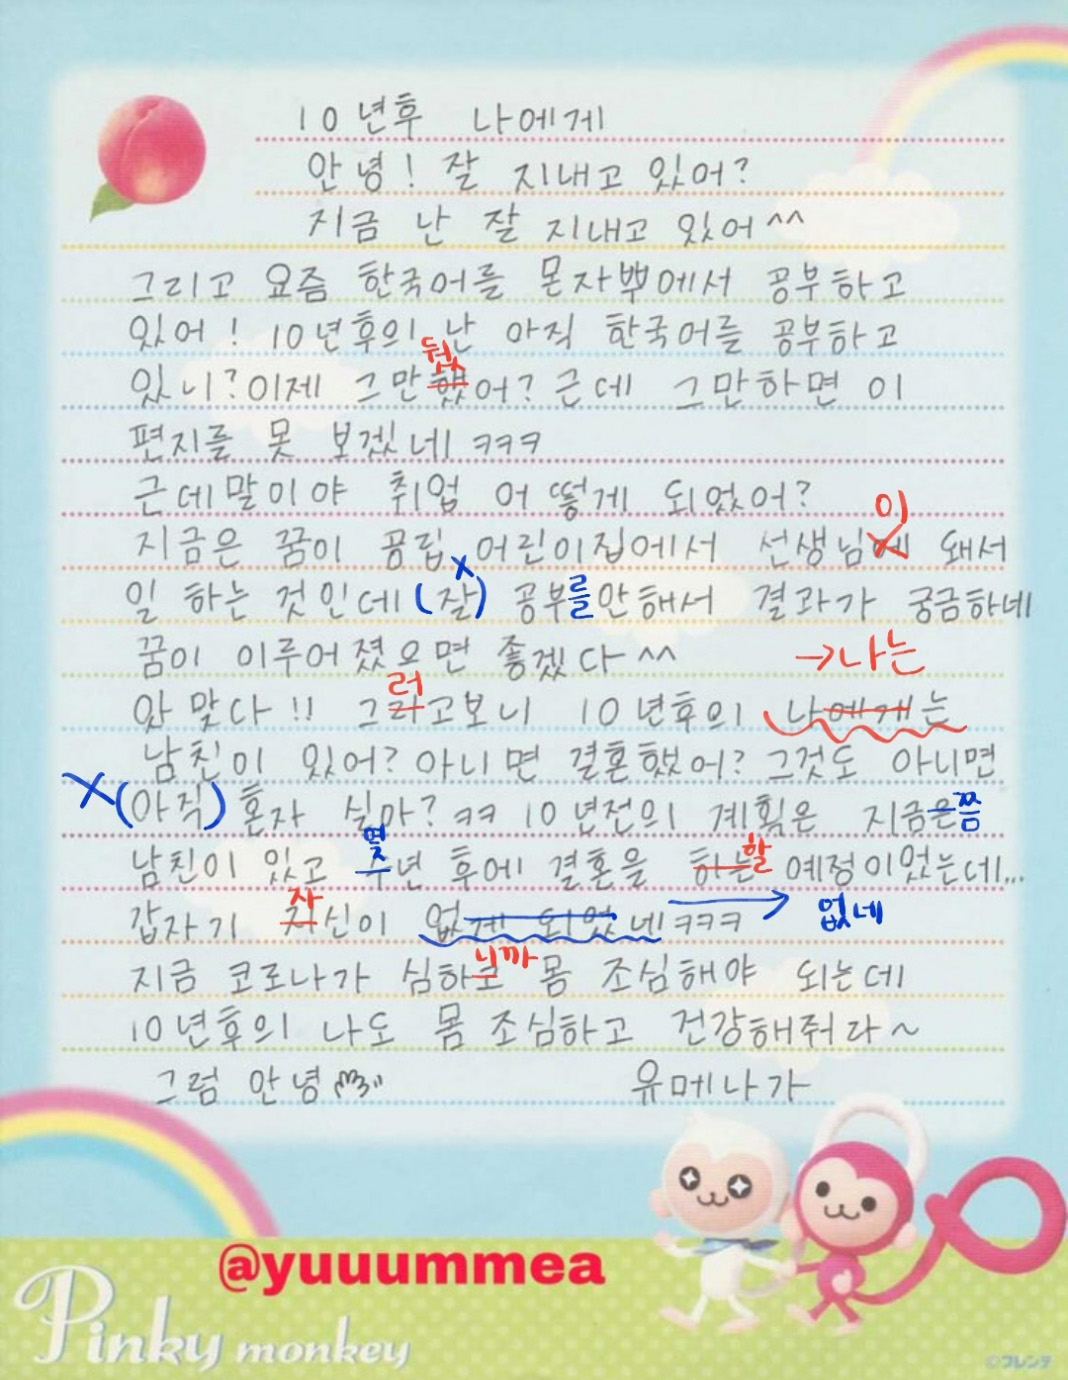 10년후 나에게
안녕! 잘 지내고 있어?
지금 난 잘 지내고 있어^^
그리고 요즘 한국어를 몬자뿌에서 공부하고
있어! 10년후의 난 아직 한국어를 공부하고
뒀
있니? 이제 그만했어? 근데 그만하면 이
편지를 못 보겠네 ㅋㅋㅋ
근데말이야 취업 어떻게 되었어?
이
지금은 꿈이 공립 어린이집에서 선생님에 돼서
x
일 하는 것인데 (잘) 공부를 안해서 결과가 궁금하네
꿈이 이루어졌으면 좋겠다^^
→나는
러
아 맞다!! 그라고보니 10년후의 나에게는
남친이 있어? 아니면 결혼했어? 그것도 아니면
X (아직) 혼자 살아? ㅋㅋ 10년전의 계획은 지금은쯤
몇 할
남친이 있고 수년 후에 결혼을 하는 예정이었는데...
자
갑자기 지신이 없게 되었네ㅋㅋㅋ 없네
니까
지금 코로나가 심하고 몸 조심해야 되는데
10년후의 나도 몸 조심하고 건강해줘라~
그럼 안녕 유메나가
@yuuummea
Pinky monkey
©フレンテ